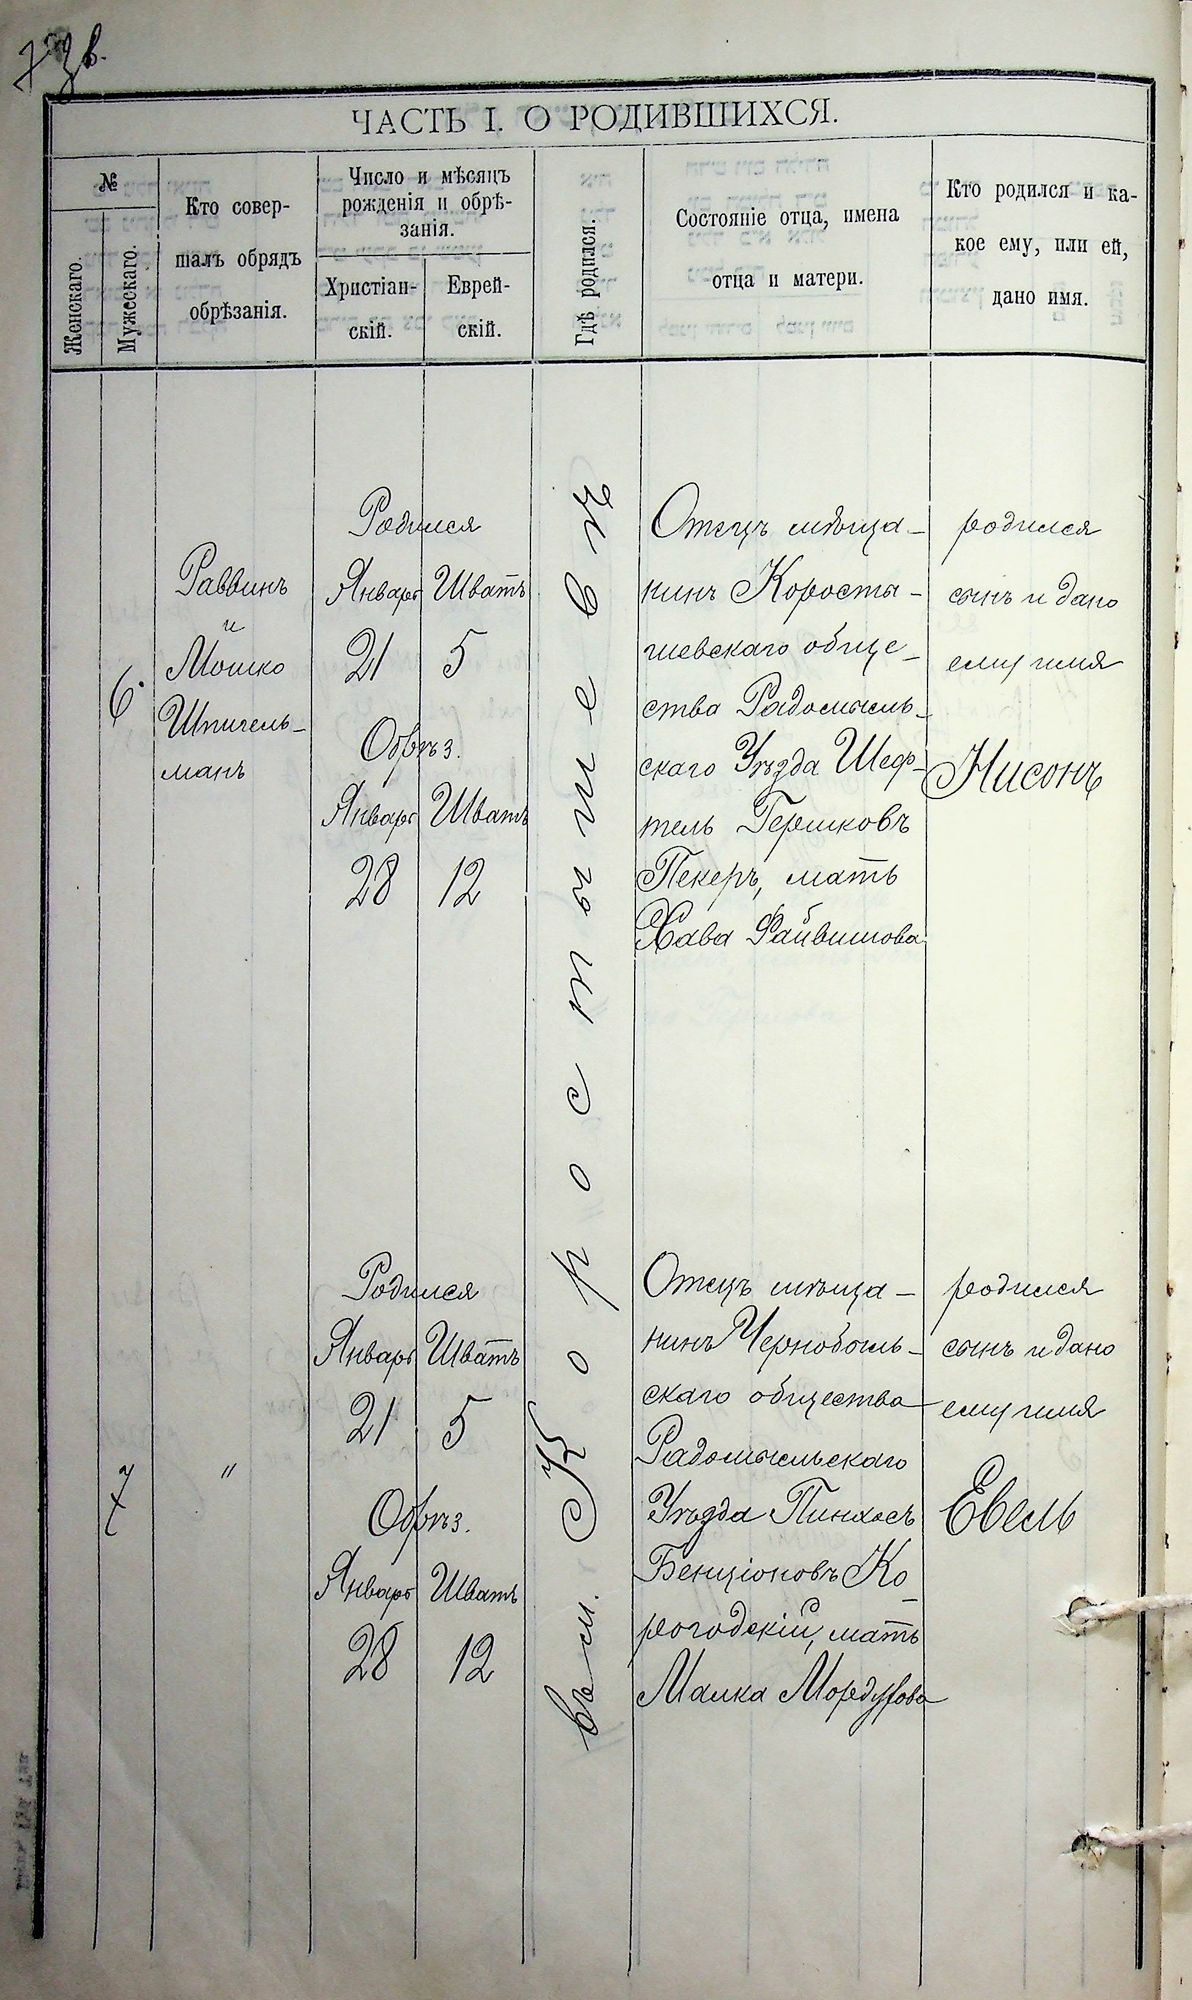 7 зв.
ЧАСТЬ I. О РОДИВШИХСЯ.
№
Женскаго.
Мужескаго.
Кто совер-
шалъ обрядъ
обрѣзанія.
Число и мѣсяцъ
рожденія и обрѣ-
занія.
Христіан-
скій.
Еврей-
скій.
Гдѣ родился.
Состояніе отца, имена
отца и матери.
Кто родился и ка-
кое ему, или ей,
дано имя.
6.
Раввинъ
и
Мошко
Шпигель-
манъ
Родился
Январь Шватъ
21 5
Обрѣз.
Январь Шватъ
28 12
въ м. Коростышевѣ
Отецъ мѣща-
нинъ Коросты-
шевскаго обще-
ства Радомысль-
скаго Уѣзда Шеф-
тель Гершковъ
Пекеръ, мать
Хава Файвишова
родился
сынъ и дано
ему имя
Нисонъ
7
"
Родился
Январь Шватъ
21 5
Обрѣз.
Январь Шватъ
28 12
Отецъ мѣща-
нинъ Чернобыль-
скаго общества
Радомысльскаго
Уѣзда Пинхасъ
Бенціоновъ Ко-
рогодскій, мать
Малка Мордухова
родился
сынъ и дано
ему имя
Евель